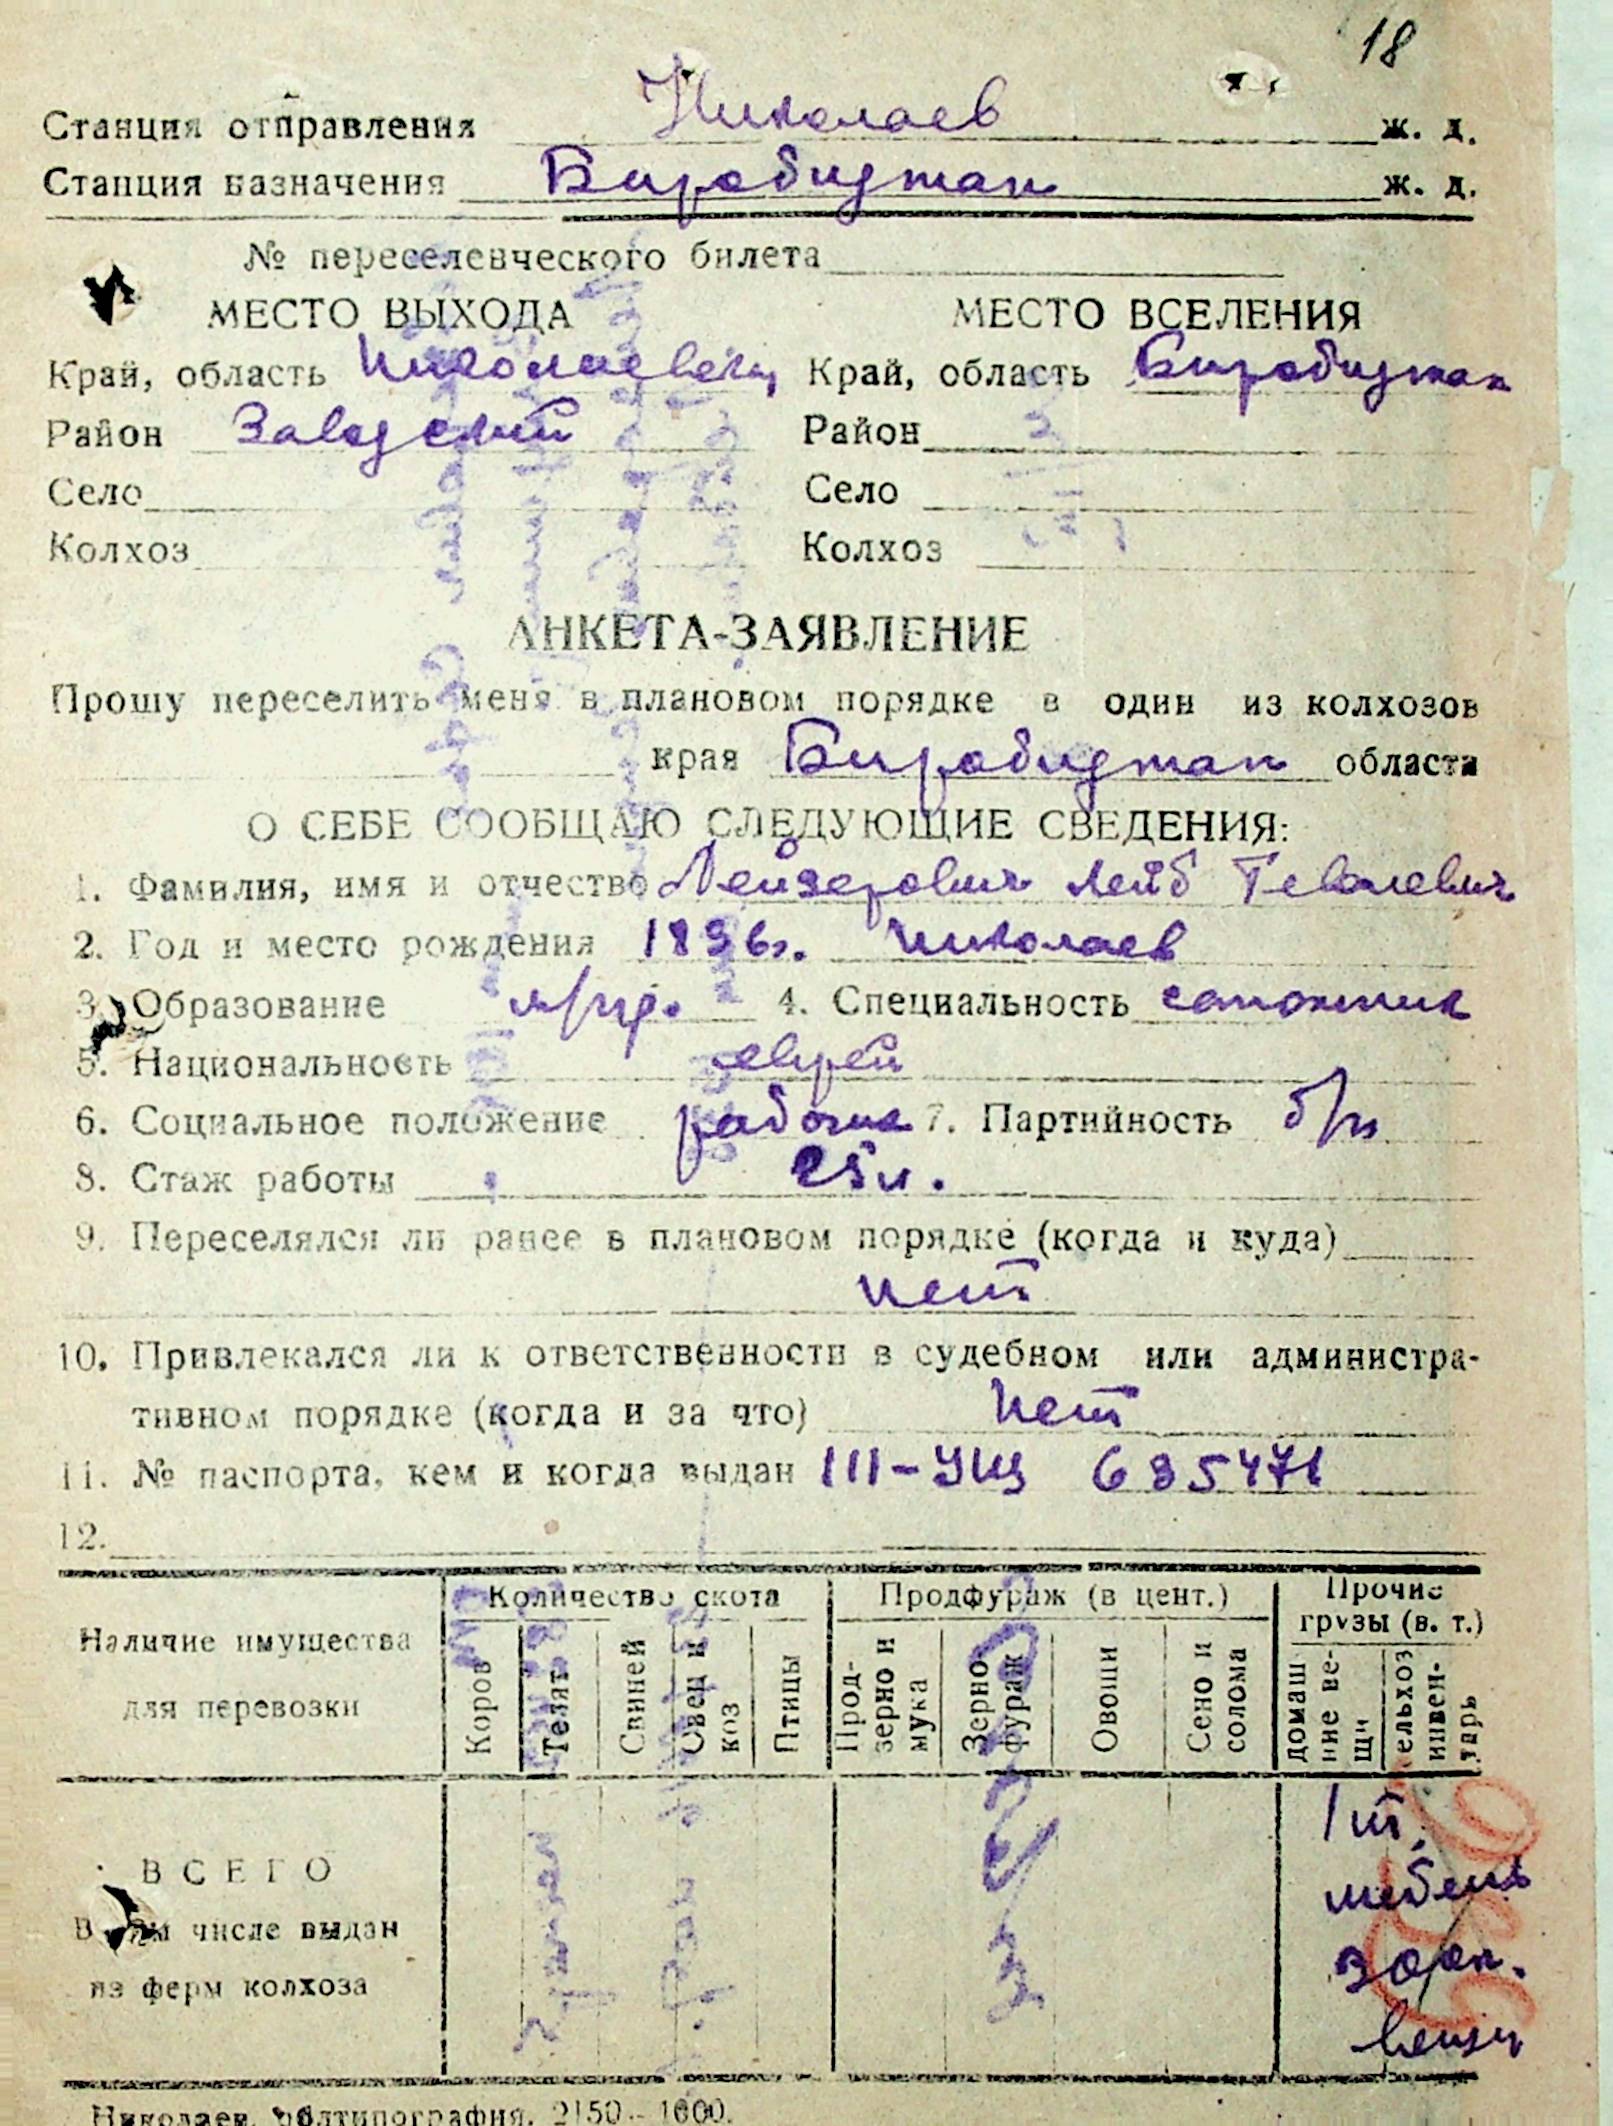 18
Станция отправления Николаев ж. д.
Станция назначения Биробиджан ж. д.
№ переселенческого билета
МЕСТО ВЫХОДА МЕСТО ВСЕЛЕНИЯ
Край, область Николаевск, Край, область Биробиджан
Район Заводский Район
Село Село
Колхоз Колхоз
АНКЕТА-ЗАЯВЛЕНИЕ
Прошу переселить меня в плановом порядке в один из колхозов
края Биробиджан области
О СЕБЕ СООБЩАЮ СЛЕДУЮЩИЕ СВЕДЕНИЯ:
1. Фамилия, имя и отчество Лейзерович Лейб Гевелевич
2. Год и место рождения 1896г. Николаев
3. Образование 4. Специальность сапожник
5. Национальность еврей
6. Социальное положение рабочий 7. Партийность б/п
8. Стаж работы 25 л.
9. Переселялся ли ранее в плановом порядке (когда и куда)
нет
10. Привлекался ли к ответственности в судебном или администра-
тивном порядке (когда и за что) нет
11. № паспорта, кем и когда выдан III-УЩ 685471
12.
Наличие имущества для перевозки
Количество скота Продфураж (в цент.) Прочие грузы (в. т.)
Коров Телят Свиней Овец и коз Птицы Прод-зерно и мука Зерно-фураж Овощи Сено и солома домаш ние ве-щи сельхоз инвен-тарь
ВСЕГО
В том числе выдан
из ферм колхоза
1 т.
мебель
вещи
Николаев, облтипография. 2150—1000.